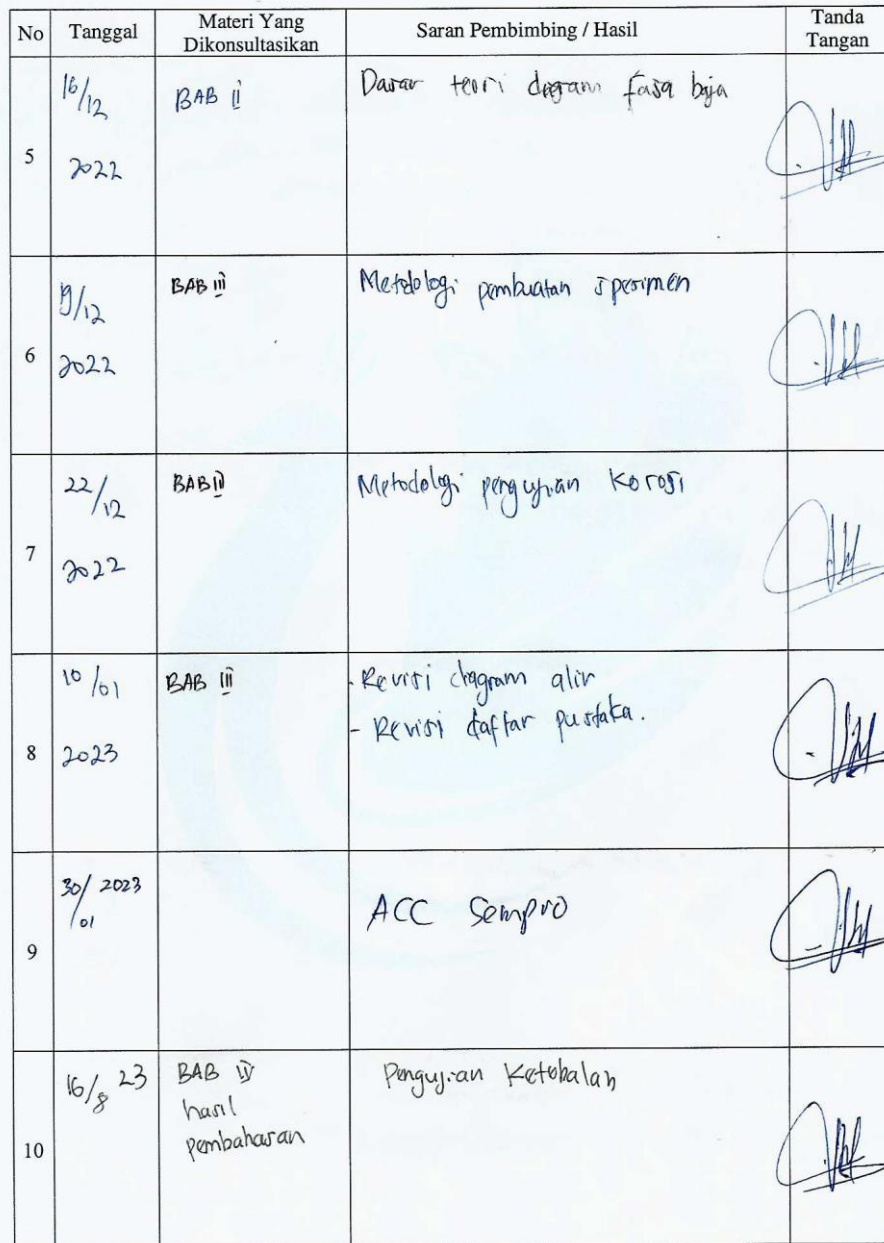 No Tanggal Materi Yang Dikonsultasikan Saran Pembimbing / Hasil Tanda Tangan
5 16/12 2022 BAB II Dasar teori diagram fasa baja
6 19/12 2022 BAB III Metodologi pembuatan spesimen
7 22/12 2022 BAB Metodologi pengujian korosi
8 10/01 2023 BAB III - Revisi diagram alir
- Revisi daftar pustaka.
9 30/01 2023 ACC Sempro
10 16/8 23 BAB IV Pengujian Ketebalan
hasil
pembahasan